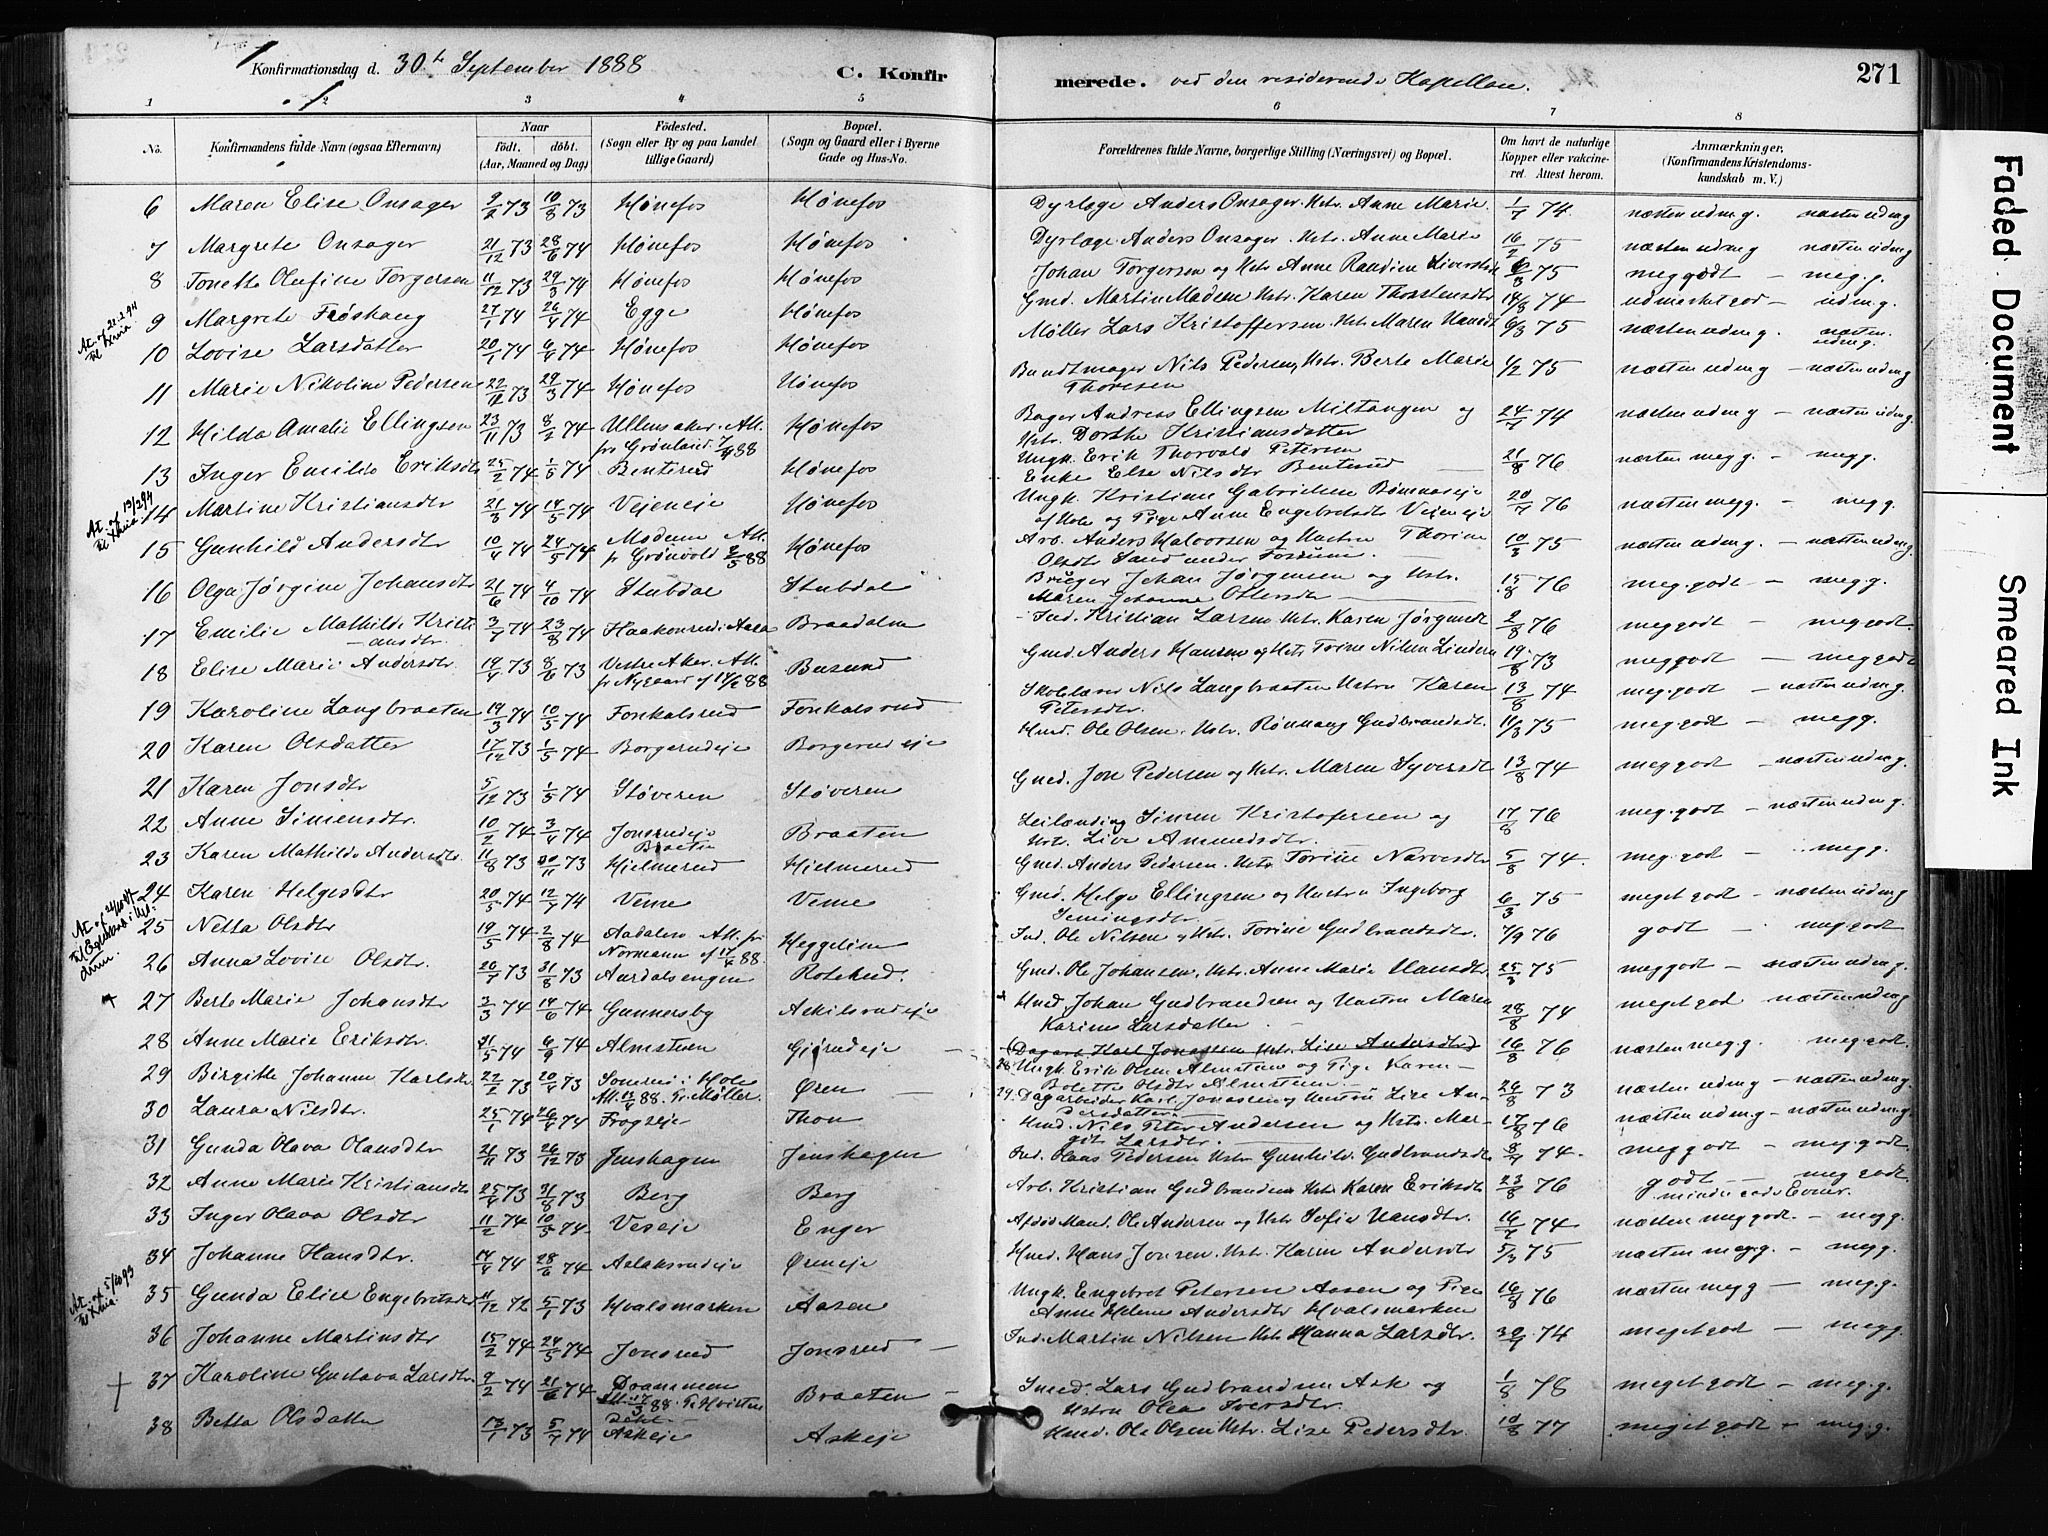 Konfirmationsdag d. 30te September 1888 C. Konfir merede. ved den residerende Kapellan. 271
1 2 3 4 5 6 7 8
No. Konfirmandens fulde Navn (ogsaa Efternavn) Naar født, døbt. (Aar, Maaned og Dag) Fødested. (Sogn eller By og paa Landet tillige Gaard) Bopæl. (Sogn og Gaard eller i Byerne Gade og Hus-No. Forældrenes fulde Navne, borgerlige Stilling (Næringsvei) og Bopæl. Om havt de naturlige Kopper eller vakcineret. Attest herom. Anmærkninger, (Konfirmandens Kristendomskundskab m. V.)
6 Maren Elise Onsager 9/2 73 10/8 73 Hønefos Hønefos Dyrlæge Anders Onsager. Hstr. Anne Marie. 1/7 74. næsten udm.g. næsten udm.g
7 Margrete Onsager 21/12 73 28/6 74 Hønefos Hønefos Dyrlæge Anders Onsager. Hstr. Anne Marie 16/2 75 næsten udm.g næsten udm.g
8 Tonette Olufine Torgersen 11/12 73 29/3 74 Hønefos Hønefos Johan Torgersen og Hstr. Anne Randine 75 meg godt – meg.g.
9 Margrete Frøshaug 27/1 74 26/4 74 Egge Hønefos Gmd. Martin Madsen Hstr. Karen Thorstensdtr 14/8 74 udmerket god – udm.g.
10 Lovise Larsdatter 20/1 74 6/4 74 Hønefos Hønefos Møller Lars Kristoffersen Hstr. Maren Hansdt 6/3 75 næsten udm.g. næsten udm.g.
11 Marie Nikoline Pedersen 22/12 73 29/3 74 Hønefos Hønefos Buntmager Nils Pedersen, Hstr. Berte Marie Thoresen 1/2 75 næsten udm.g – næsten udm.g
12 Hilda Amalie Ellingsen 23/11 73 8/2 74 Ullensaker. Att. fra Grønland 7/4 88 Hønefos Bager Andreas Ellingsen Miltangen og Hstr. Dorthe Kristiansdatter 24/7 74 næsten udm.g – næsten udm.g.
13 Inger Emilde Eriksdtr 25/2 74 1/5 74 Benterud Hønefos Ungk. Erik Thorvald Petersen Enke Else Nilsdtr Benterud 21/8 76 næsten meg g. – meg g.
14 Martine Kristiansdtr 21/3 74 14/5 74 Vejeneje Hønefos Ungk. Kristian Gabrielsen af Hole og Pige Anne Engebretsdtr Vejeneje 20/7 76 næsten meg g. – meg g.
15 Gunhild Andersdtr 10/4 74 24/5 74 Modum Att. fr Grönvold 2/5 88 Hønefos Arb. Anders Halvorsen og Hustru Thorine Olsdtr Sand under Fossum. 10/3 75 næsten udm.g. – næsten udm.g.
16 Olga Jørgine Johansdtr 21/6 74 4/10 74 Stubdal Stubdal Bruger Johan Jørgensen og Hstr. Maren Johanne Ottersdtr 15/8 76 meg.godt – meg g.
17 Emilie Mathilde Kristiansdtr. 3/7 74 23/8 74 Haakonrud i Aasa Braadalen Ind. Kristian Larsen Hstr. Karen Jørgensdt 2/8 76 meg godt – meg godt.
18 Elise Marie Andersdtr. 19/4 73 8/6 73 Vestre Aker. Att. fr Nygaard af 14/2 88 Busund Gmd. Anders Hansen og Hstr Torine Nilsen Linderu 19/8 73 meg godt – meg godt
19 Karoline Langbraaten 19/3 74 10/5 74 Fonkalsrud Fonkalsrud Skolelærer Nils Langbraaten Hstru Karen Petersdtr. 13/8 74 meg.godt – næsten udm.g.
20 Karen Olsdatter 17/12 73 1/5 74 Borgerudeje Borgerudeje Hmd. Ole Olsen. Hstr. Rønnaug Gudbrandsdt. 11/3 75 meg godt – meg g.
21 Karen Jonsdtr 5/12 73 1/5 74 Støveren Støveren Gmd. Jon Pedersen og Hstr. Maren Syversdt 13/8 74 meg godt – næsten udm.g.
22 Anne Simensdtr. 10/2 74 3/4 74 Jonsrudeje Braaten Braaten Leilænding Simen Kristofersen og Hstr. Live Ammundsdtr. 17/8 76 meg.godt – næsten udm.g.
23 Karen Mathilde Andersdtr. 11/8 73 30/11 73 Hjelmerud Hjelmerud Gmd. Anders Pedersen. Hstr. Torine Narvesdtr 5/8 74. meg.godt – meg g.
24 Karen Helgesdtr 20/5 74 12/7 74 Veme Veme Gmd. Helge Ellingsen og Hustru Ingeborg Semingsdtr 6/3 75 meget godt – næsten udm.g
25 Netta Olsdtr 19/5 74 2/8 74 Aadalen Att. fr Normann af 17/4 88. Heggelien Ind. Ole Nilsen og Hstr. Torine Gudbrandsdtr. 7/9 76 godt – meg godt
26 Anna Lovise Olsdtr. 20/7 73 31/8 73 Aurdalsengen Rolerud. Gmd. Ole Johansen, Hstr. Anne Marie Hansdtr. 25/3 75 meg godt – næsten udm.g.
27 Berte Marie Johansdtr 3/3 74 14/6 74 Gunnersby Askilsrudeje Hmd. Johan Gudbrandsen og Hustru Maren Karine Larsdatter. 28/8 74 meget god næsten udm.g
28 Anne Marie Eriksdtr. 31/5 74 6/9 74 Almstuen Gjørudeje (Dagarb. Karl Jonassen Hstr. Lise Andersdtr.) 16/8 76 næsten meg.g. – meg godt.
28. Ungk. Erik Olsen Almstuen og Pige Karen Bolette Olsdtr Almstuen.
29 Birgitte Johanne Karlsdtr. 22/2 73 20/4 73 i Hole Att. 88. fr. Møller. Øren 29. Dagarbeider Karl Jonassen og Hustru Lise Andersdatter. 26/8 73 næsten udm.g – næsten udm.g
30 Laura Nilsdtr. 25/1 74 26/4 74 Frogseje Thon Hmd. Nils Peter Andersen og Hstr. Margit Larsdtr. 17/8 76 næsten udm.g. næsten udm.g.
31 Gunda Olava Olausdtr 21/11 73 26/12 73 Jenshagen Jenshagen Ind. Olaus Pedersen Hstr Gunhild Gudbrandsdt. 8/7 74. meg godt – meg.godt
32 Anne Marie Kristiansdtr 25/4 73 31/8 73 Berg Berg Arb. Kristian Gudbrandsen Hstr. Karen Eriksdtr 23/8 76 godt – meg godt minde gode Evner.
33 Inger Olava Olsdtr 11/2 74 10/5 74 Veseje Enger Afdøde Mand. Ole Andersen og Hstr Sofie Hansdtr. 16/7 74 næsten meg godt. – meg g.
34 Johanne Hansdtr. 14/4 74 28/6 74 Aslaksrudeje Øreneje Hmd. Hans Jonsen. Hstr. Karen Andersdtr 5/3 75 næsten meg.g. – meg g.
35 Gunda Elise Engebretsdtr 11/12 72 5/1 73 Hvalsmarken Aasen Ungk. Engebret Petersen Aasen og Pige Anne Helene Andersdtr Hvalsmarken 16/8 76 næsten meg g – meg.g.
36 Johanne Martinsdtr 15/2 74 24/5 74 Jonsrud Jonsrud – Ind. Martin Nilsen Hstr. Hanna Larsdtr. 30/7 74 meget god – meg g.
37 Karoline Gustava Larsdtr. 9/2 74 21/6 74 Drammen Att. 88. Braaten – Smed. Lars Gudbrandsen Ask og Hstru Olea Iversdtr. 1/8 78 meget godt – meg.g.
38 Betta Olsdatter 73 5/7 74 Askeje Askeje Hmd. Ole Olsen Hstr. Lise Pedersdtr. 10/8 77 meget godt – meg.g.
At. af 22.2.94 til Xania
At. af 19/2 94 til Xania
At. af 5/10 93 til Xania.
Faded Document
Smeared Ink